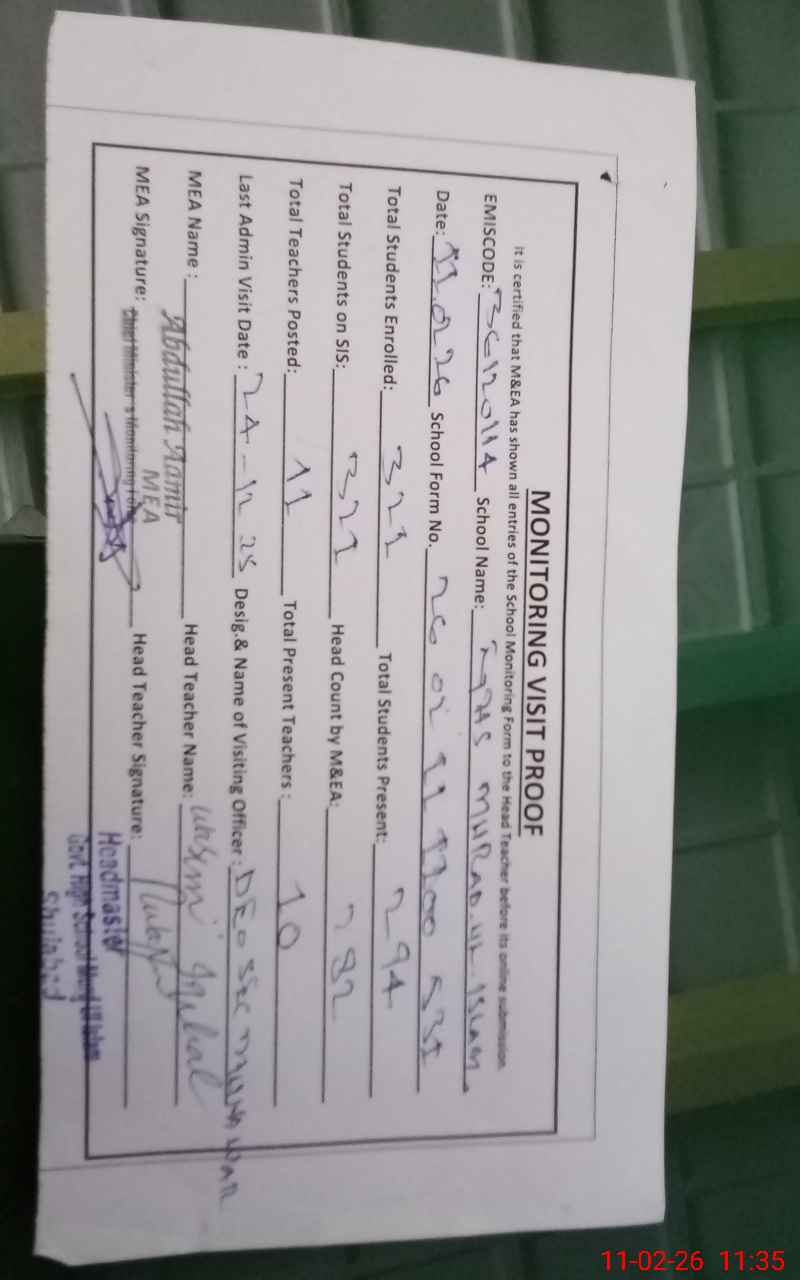 MONITORING VISIT PROOF
It is certified that M&EA has shown all entries of the School Monitoring Form to the Head Teacher before its online submission.
EMISCODE: 36120114 School Name: GHS MURAD.UL.ISLAM
Date: 11.02.26 School Form No. 26 02 11 1200 531
Total Students Enrolled: 321 Total Students Present: 294
Total Students on SIS: 321 Head Count by M&EA: 282
Total Teachers Posted: 11 Total Present Teachers : 10
Last Admin Visit Date : 24-12 25 Desig.& Name of Visiting Officer : DEO SEC MUNAWAR
MEA Name : Abdullah Aamir Head Teacher Name: Wasim Iqbal
MEA
MEA Signature: Chief Minister's Monitoring Force Head Teacher Signature:
Headmaster
Govt. High School Murad Ul Islam
11-02-26 11:35